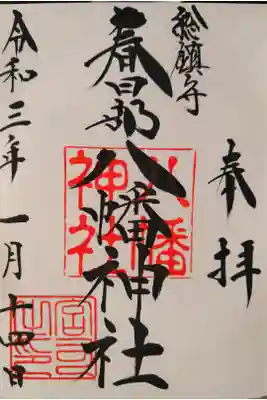 奉拝
総鎮守
春日部八幡神社
八幡
神社
令和三年一月十四日
宮司
之印